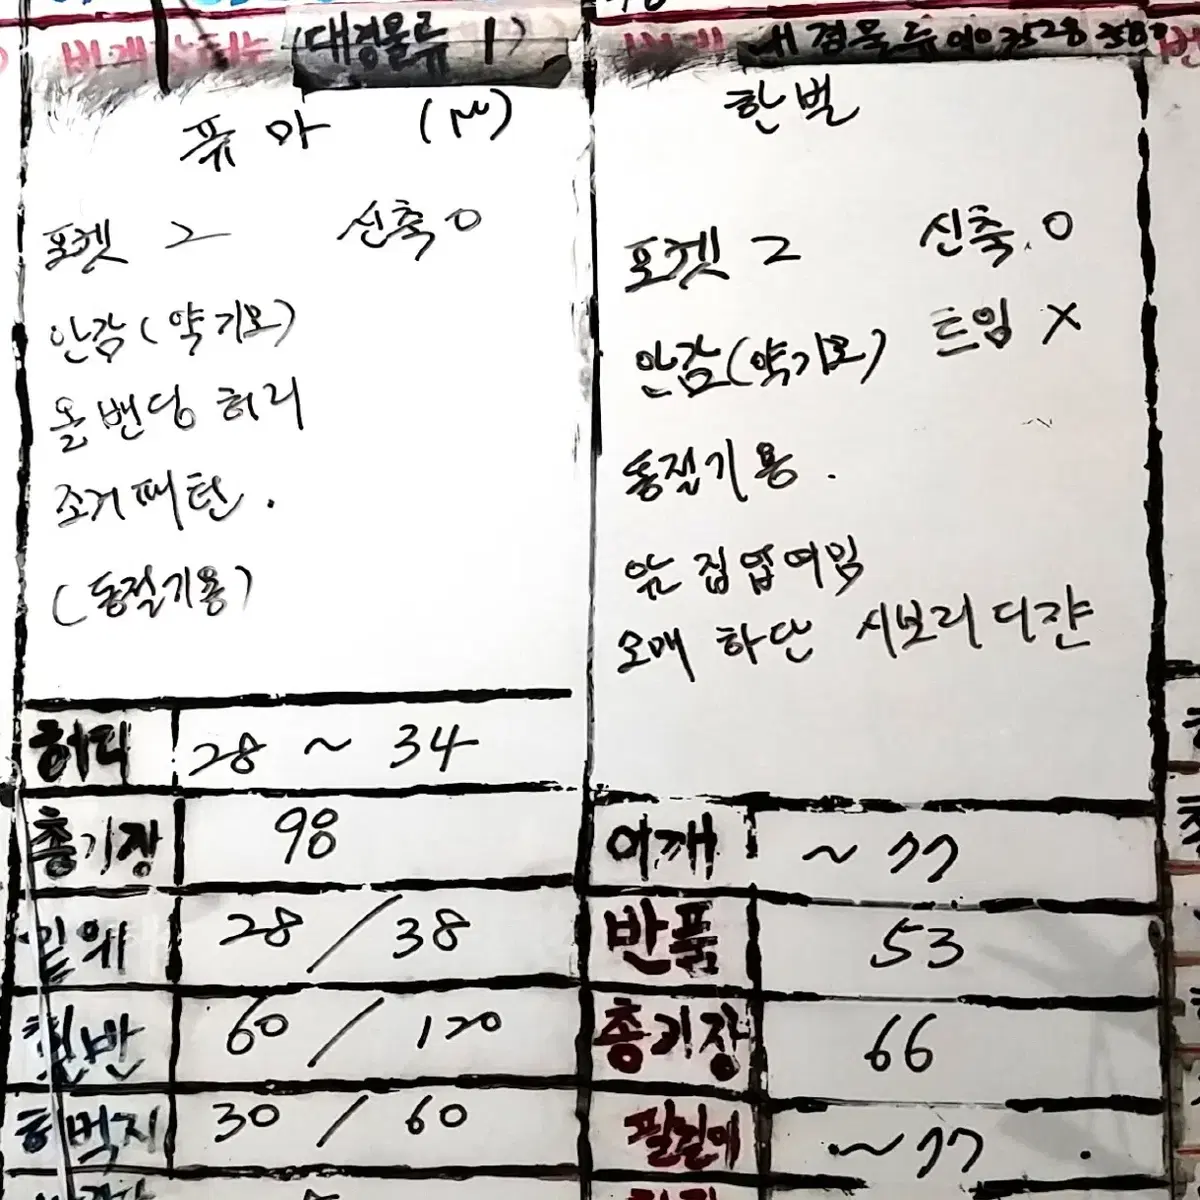 (대경물류 1)
퓨마 (M)
포켓 2 신축 0
안감 (약기모)
올밴딩 허리
조거패턴.
(동절기용)
허리 28 ~ 34
총기장 98
밑위 28 / 38
힙반 60 / 120
허벅지 30 / 60
대경물류 010 3528
한벌
포켓 2 신축. 0
안감 (약기모) 트임 X
동절기용.
앞 집업여밈
오매 하단 시보리디쟌
어깨 ~ 77
반품 53
총기장 66
팔길이 ~ 77